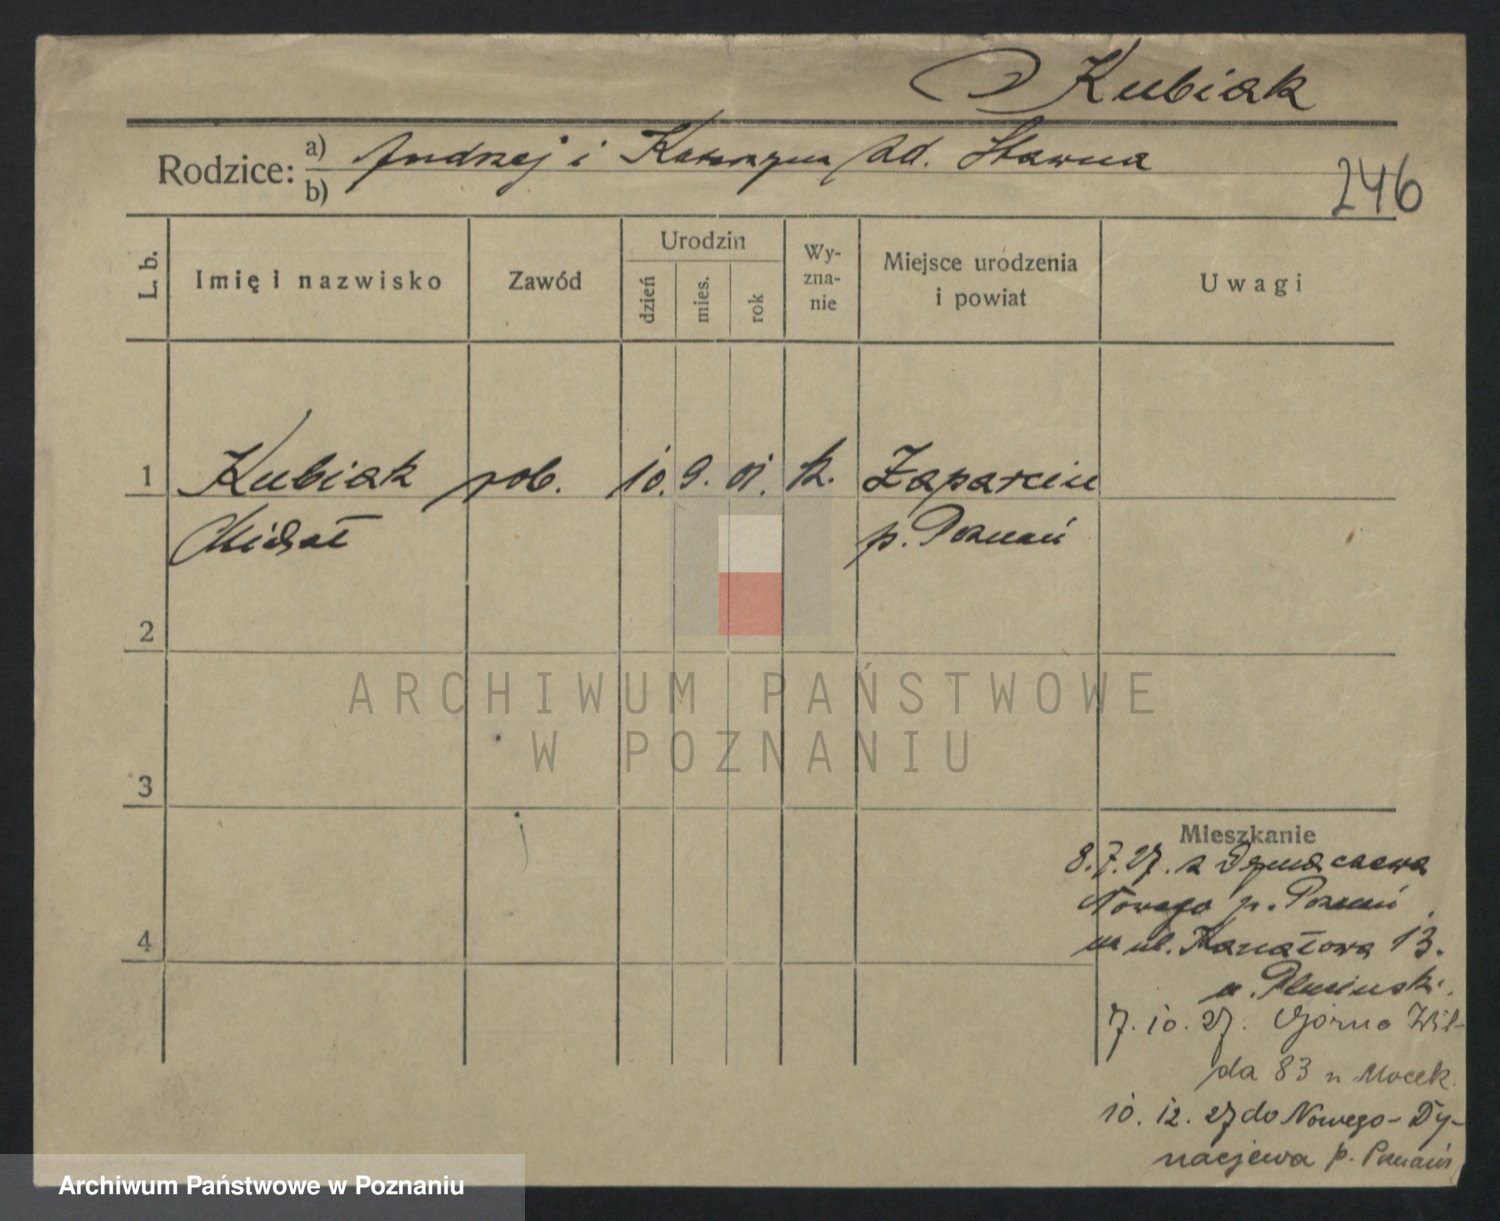 Kubiak
Rodzice: a) Andrzej i Katarzyna zd. Sławna
b)
246
L. b.
Imię i nazwisko
Zawód
Urodzin
dzień
mies.
rok
Wy-
zna-
nie
Miejsce urodzenia
i powiat
Uwagi
1 Kubiak rob. 10. 9. 01. k.
Michał p. Poznań
2
ARCHIWUM PAŃSTWOWE
W POZNANIU
3
Mieszkanie
8.7.27. z
Nowego p. Poznań
4
na ul. Kanałowa 13.
7.10.27. Górna Wil-
da 83 u Mocek.
10.12.27 do Nowego-Dy-
naczewa p. Poznań
Archiwum Państwowe w Poznaniu